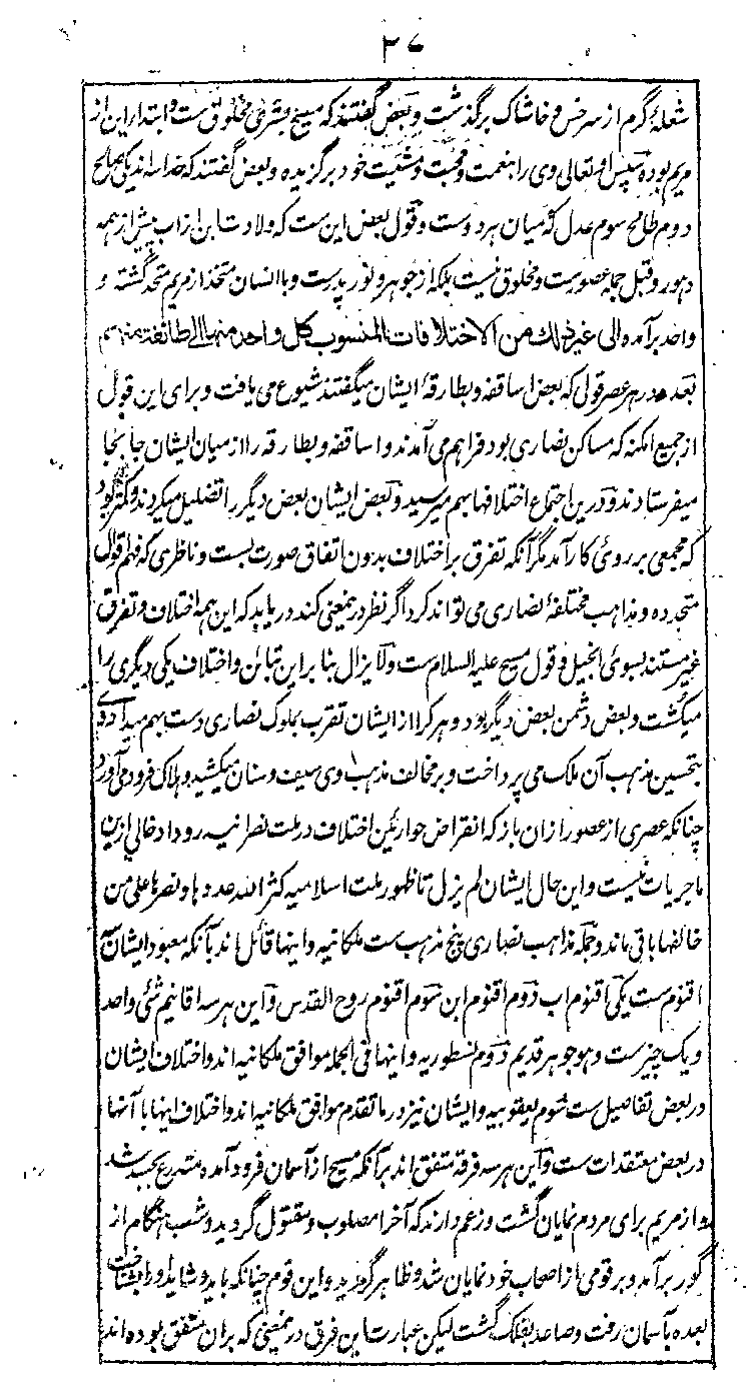 ۳۷
شعلهٔ گرم از سر خس و خاشاک برگذشت و بعض گفتند که مسیح بشری مخلوق ست و ابتدار این از
مریم بوده سپس او تعالی وی را بنعمت و محبت و مشیت خود برگزیده و بعض گفتند که خدا سه اند یکی صالح
دوم طالح سوم عدل که میان هر دوست و قول بعض این ست که ولادت ابن از اب پیش از همه
دهور و قبل جمله عصورست و مخلوق نیست بلکه از جوهر و نور پدرست و با انسان متخذ از مریم متحد گشته و
واحد برآمده الی غیر ذلك من الاختلافات المنسوب كل واحد منها الی طائفة منهم
بعده در هر عصر قولی که بعض اساقفه و بطارقهٔ ایشان میگفتند شیوع می یافت و برای این قول
از جمیع امکنه که مساکن نصاری بود فراهم می آمدند و اساقفه و بطارقه را از میان ایشان جا بجا
میفرستادند و درین اجتماع اختلافها بهم میرسید و بعض ایشان بعض دیگر را تضلیل میکردند و کمتر بود
که مجمعی بر روی کار آمد مگر آنکه تفرق بر اختلاف بدون اتفاق صورت بست و ناظری که فهم اقوال
متجدده و مذاهب مختلفهٔ نصاری می تواند کرد اگر نظر درینمعنی کند دریابد که این همه اختلاف و تفرق
غیر مستند بسوی انجیل و قول مسیح علیه السلام ست و لا یزال بنا بر این تبائن و اختلاف یکی دیگری را
میکشت و بعض دشمن بعض دیگر بود و هر کرا از ایشان تقرب بملوک نصاری دست بهم میداد وی
بتحسین مذهب آن ملک می پرداخت و بر مخالف مذهب وی سیف و سنان میکشید و هلاک فرود می آورد
چنانکه عصری از عصور ازان باز که انقراض حواریین اختلاف در ملت نصرانیه رو داد خالی ازین
ماجریات نیست و این حال ایشان لم یزل تا ظهور ملت اسلامیه کثر الله عددها و نصرها علی من
خالفها باقی ماند و جمله مذاهب نصاری پنج مذهب ست ملکانیه و اینها قائل اند بآنکه معبود ایشان سه
اقنوم ست یکی اقنوم اب دوم اقنوم ابن سوم اقنوم روح القدس و این هر سه اقانیم شئی واحد
و یک چیز ست و هو جوهر قدیم دوم نسطوریه و اینها فی الجمله موافق ملکانیه اند و اختلاف ایشان
در بعض تفاصیل ست سوم یعقوبیه و ایشان نیز در ما تقدم موافق ملکانیه اند و اختلاف اینها با آنها
در بعض معتقدات ست و این هر سه فرقه متفق اند بر آنکه مسیح از آسمان فرود آمده متدرع بجسد شد
و از مریم برای مردم نمایان گشت و زعم دارند که آخر مصلوب و مقتول گردید و شب هنگام از
گور برآمد و بر قومی از اصحاب خود نمایان شد و ظاهر گردید و این قوم چنانکه باید و شاید او را بشناخت
بعده بآسمان رفت و صاعد بفلک گشت لیکن عبارت این فرق درینمعنی که بران متفق بوده اند